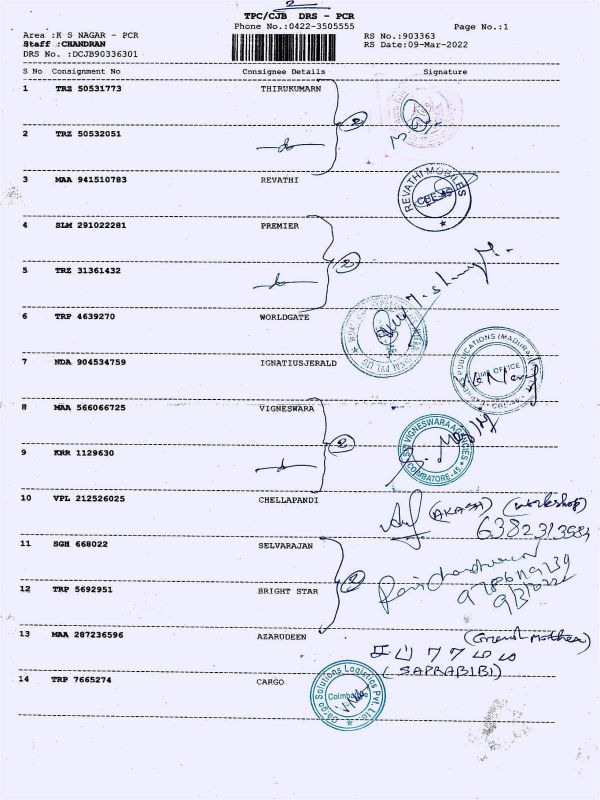 2
TPC/CJB DRS - PCR
Phone No.:0422-3505555
Page No.:1
Area :K S NAGAR - PCR
RS No.:903363
Staff :CHANDRAN
RS Date:09-Mar-2022
DRS No. :DCJB90336301
S No Consignment No Consignee Details Signature
1 TRZ 50531773 THIRUKUMARN
2
2 TRZ 50532051
do
3 MAA 941510783 REVATHI
REVATHI MOBILES
CBE-45
4 SLM 291022281 PREMIER
2
5 TRZ 31361432
do
6 TRP 4639270 WORLDGATE
7 NDA 904534759 IGNATIUSJERALD
PUBLICATIONS (MADURAI)
8 MAA 566066725 VIGNESWARA
2
SRI VIGNESWARA AGENCIES
COIMBATORE-45
9 KRR 1129630
do
10 VPL 212526025 CHELLAPANDI
(AKASH) (workshop)
11 SGH 668022 SELVARAJAN
2
Ravichandran
9/3/2022
12 TRP 5692951 BRIGHT STAR
13 MAA 287236596 AZARUDEEN
(Grand Mother)
(SAPRABIBI)
14 TRP 7665274 CARGO
Cargo Solutions Logistics Pvt. Ltd.
Coimbatore